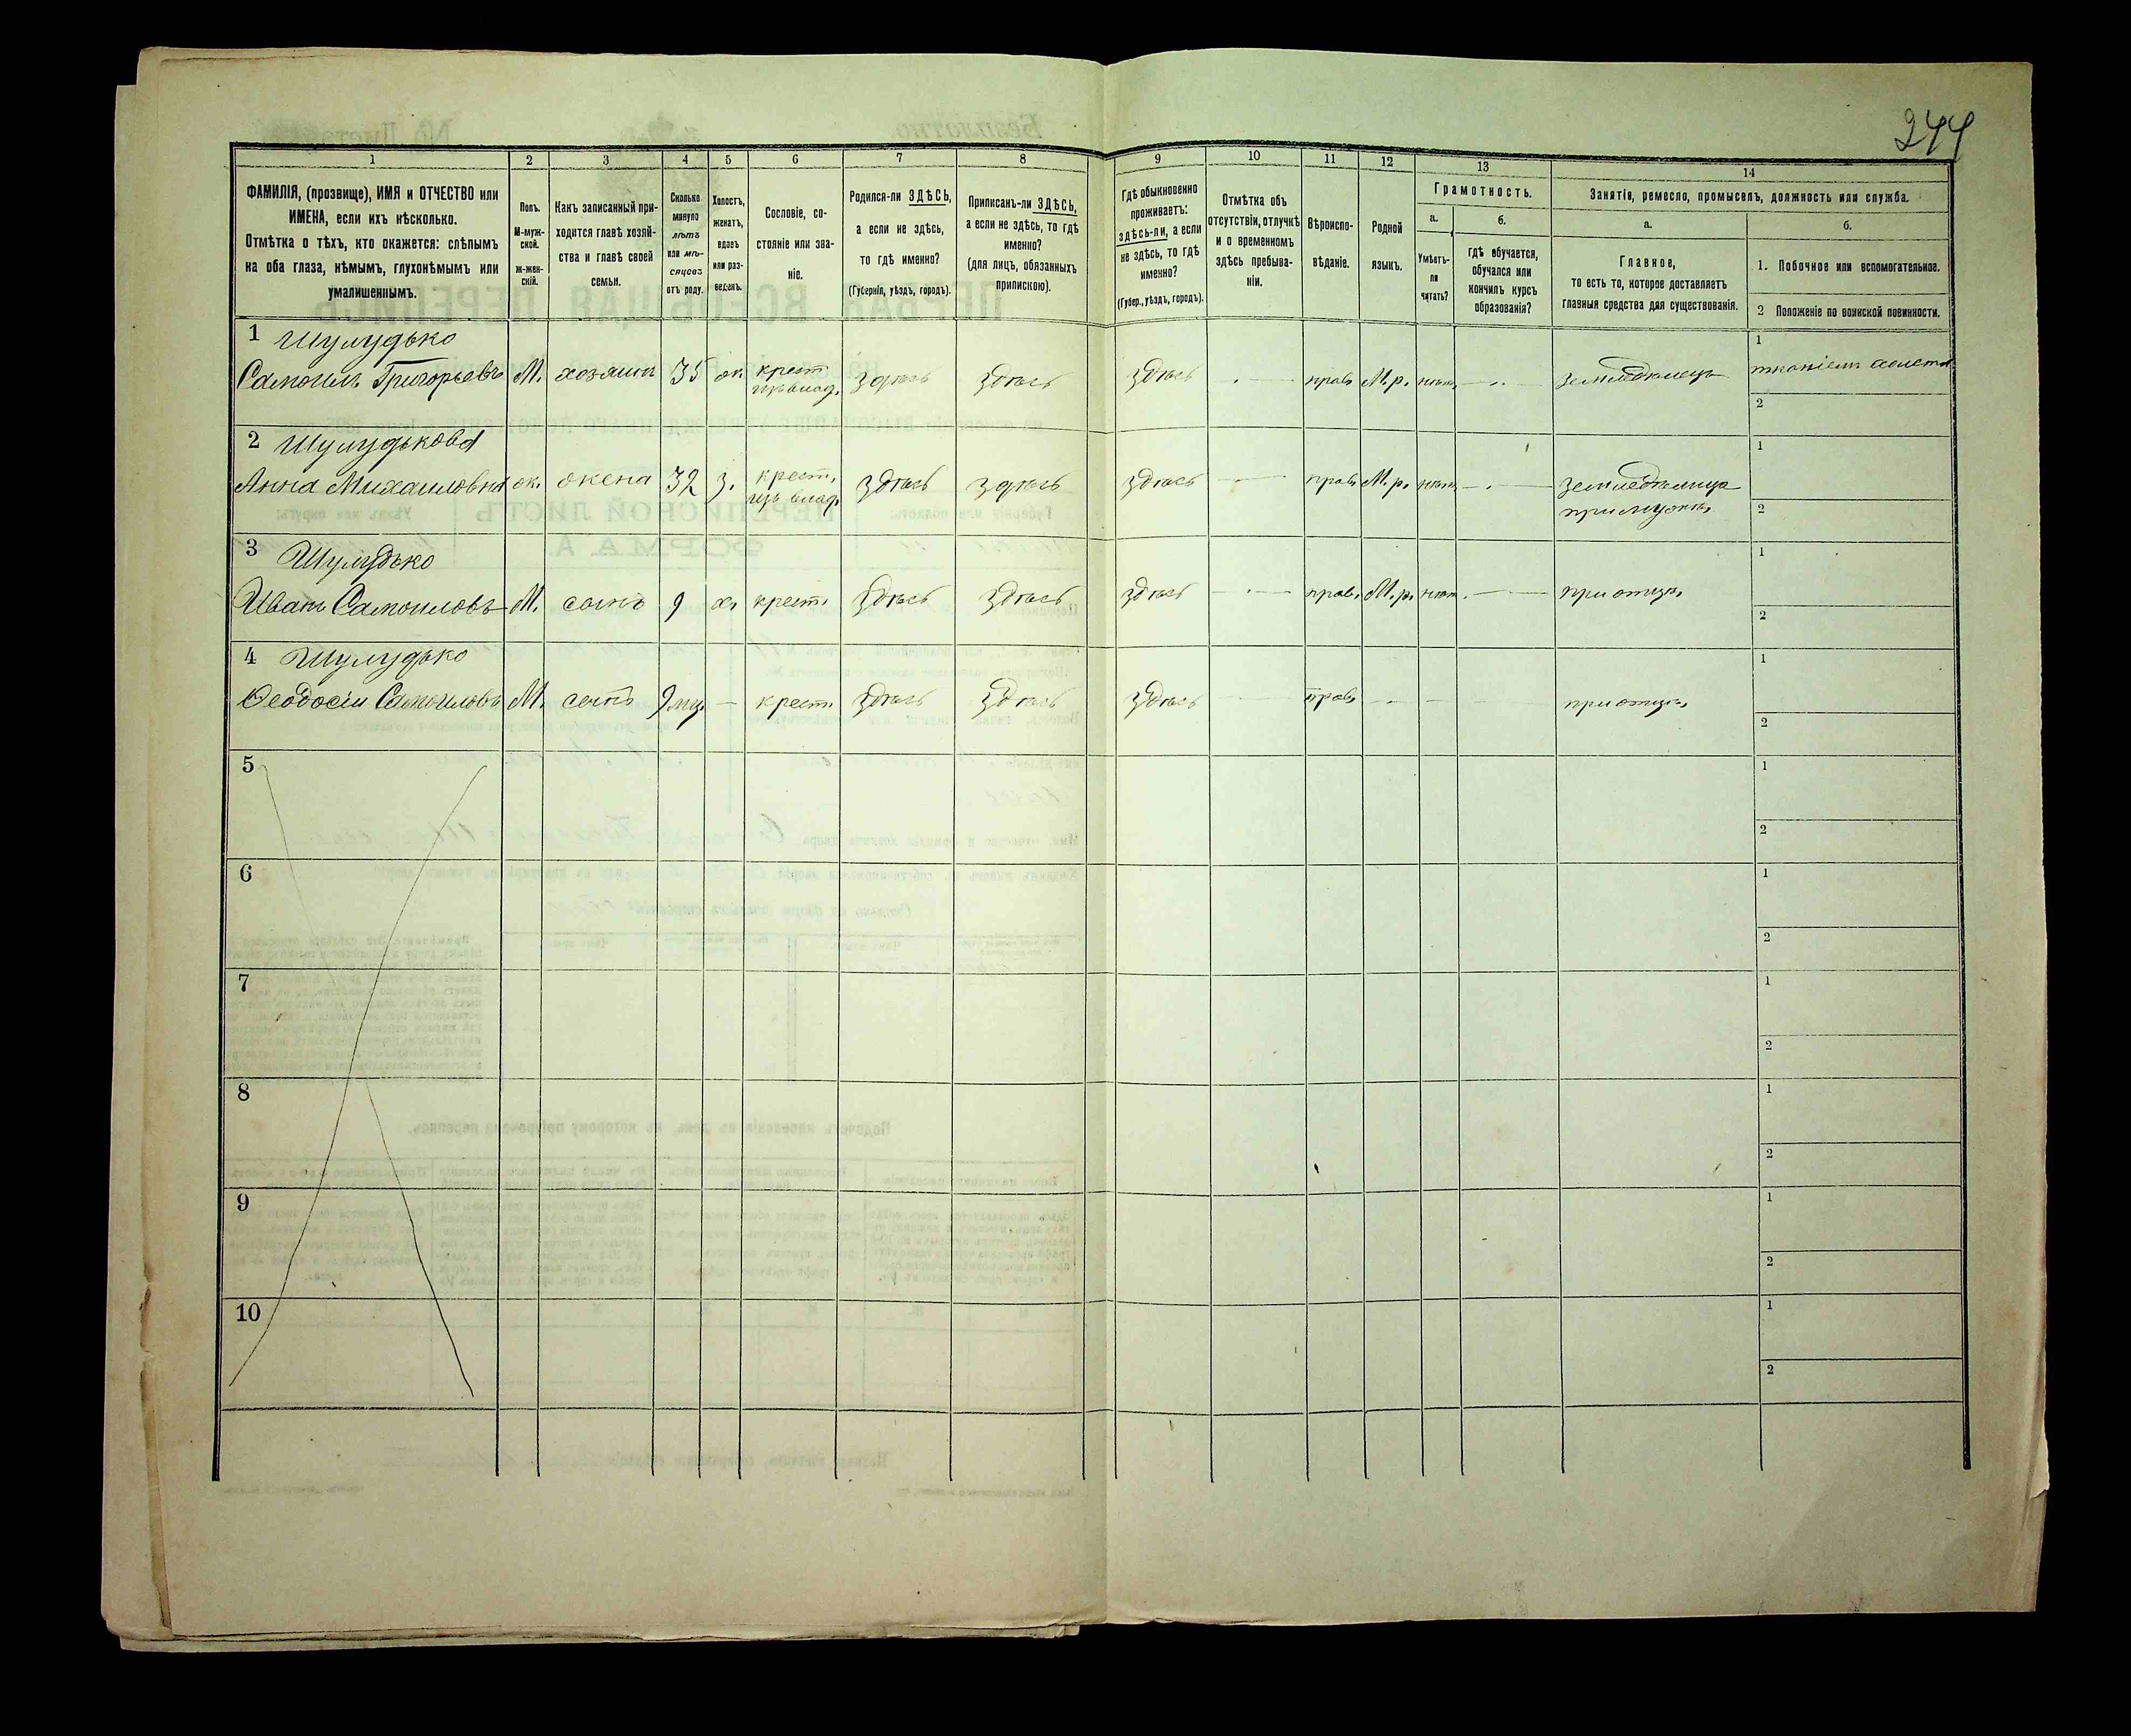 244
1 2 3 4 5 6 7 8 9 10 11 12 13 14
ФАМИЛІЯ, (прозвище), ИМЯ и ОТЧЕСТВО или
ИМЕНА, если ихъ нѣсколько.
Отмѣтка о тѣхъ, кто окажется: слѣпымъ
на оба глаза, нѣмымъ, глухонѣмымъ или
умалишеннымъ.
Полъ.
М-муж-
ской.
Ж-жен-
скій.
Какъ записанный при-
ходится главѣ хозяй-
ства и главѣ своей
семьи.
Сколько
минуло
лѣтъ
или мѣ-
сяцевъ
отъ роду.
Холостъ,
женатъ,
вдовъ
или раз-
веденъ.
Сословіе, со-
стояніе или зва-
ніе.
Родился-ли ЗДѢСЬ,
а если не здѣсь,
то гдѣ именно?
(Губернія, уѣздъ, городъ).
Приписанъ-ли ЗДѢСЬ,
а если не здѣсь, то гдѣ
именно?
(для лицъ, обязанныхъ
припискою).
Гдѣ обыкновенно
проживаетъ:
здѣсь-ли, а если
не здѣсь, то гдѣ
именно?
(Губер., уѣздъ, городъ).
Отмѣтка объ
отсутствіи, отлучкѣ
и о временномъ
здѣсь пребыва-
ніи.
Вѣроиспо-
вѣданіе.
Родной
языкъ.
Грамотность.
а.
Умѣетъ-
ли
читать?
б.
гдѣ обучается,
обучался или
кончилъ курсъ
образованія?
Занятія, ремесло, промыселъ, должность или служба.
а.
Главное,
то есть то, которое доставляетъ
главныя средства для существованія.
б.
1. Побочное или вспомогательное.
2 Положеніе по воинской повинности.
1 Шулудько
Самоилъ Григорьевъ М. хозяинъ 35 ж крест. здѣсь здѣсь здѣсь — прав. М.р. нѣтъ — земледѣлецъ
изъ влад.
1
2
2 Шулудькова
Анна Михаиловна ж. жена 32 з. крест. здѣсь здѣсь здѣсь — прав. М.р. нѣтъ — земледѣлица
изъ влад. при мужѣ
1
2
3 Шулудько
Иванъ Самоиловъ М. сынъ 9 х. крест. здѣсь здѣсь здѣсь — прав. М.р. нѣтъ — при отцѣ
1
2
4 Шулудько
Ѳеодосій Самоиловъ М. сынъ 9 мц. — крест. здѣсь здѣсь здѣсь — прав. — — — при отцѣ
1
2
5
1
2
6
1
2
7
1
2
8
1
2
9
1
2
10
1
2